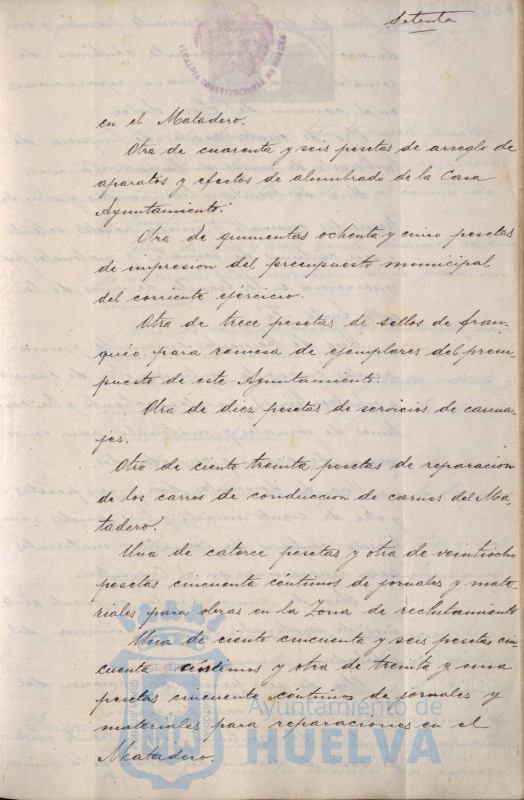 Setenta
ALCALDIA CONSTITUCIONAL DE HUELVA
en el Matadero.
Otra de cuarenta y seis pesetas de arreglo de
aparatos y efectos de alumbrado de la Casa
Ayuntamiento.
Otra de quinientas ochenta y cinco pesetas
de impresion del presupuesto municipal
del corriente ejercicio.
Otra de trece pesetas de sellos de fran-
queo para remesa de ejemplares del presu-
puesto de este Ayuntamiento.
Otra de diez pesetas de servicios de carrua-
jes.
Otra de ciento treinta pesetas de reparacion
de los carros de conduccion de carnes del Ma-
tadero.
Una de catorce pesetas y otra de veintiocho
pesetas cincuenta céntimos de jornales y mate-
riales para obras en la Zona de reclutamiento
Una de ciento cincuenta y seis pesetas cin-
cuenta céntimos y otra de treinta y una
pesetas cincuenta céntimos de jornales y
materiales para reparaciones en el
Matadero.
Ayuntamiento de
HUELVA